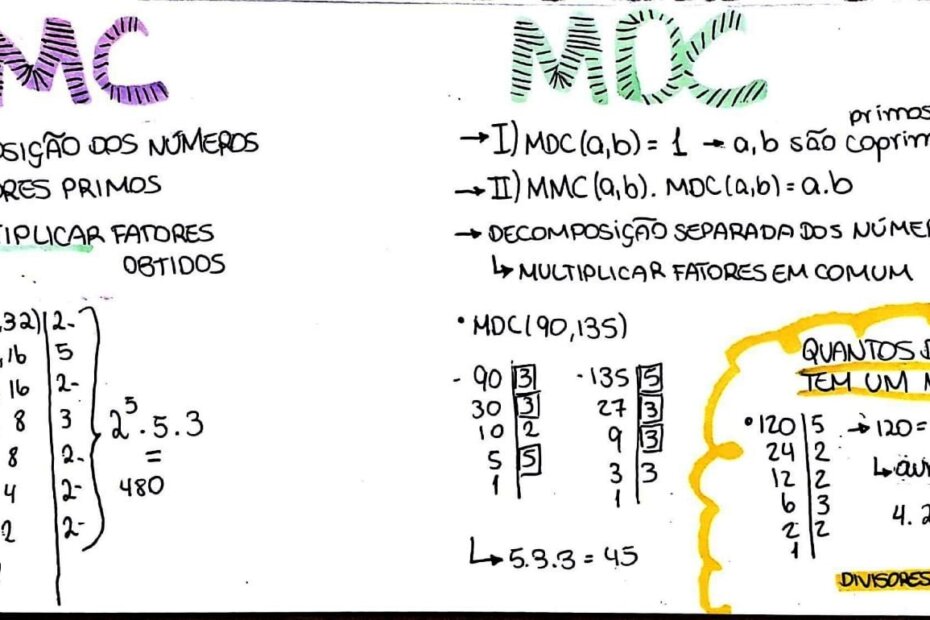 MC
OSIÇÃO DOS NÚMEROS
ORES PRIMOS
TIPLICAR FATORES
OBTIDOS
,32)|2-
,16|5
16|2-
8|3
8|2-
4|2-
2|2-
2⁵.5.3
=
480
MDC
→ I) MDC(a,b) = 1 → a,b são coprim
primos
→ II) MMC(a,b). MDC(a,b) = a.b
→ DECOMPOSIÇÃO SEPARADA DOS NÚMER
↳ MULTIPLICAR FATORES EM COMUM
• MDC(90,135)
- 90|3
30|3
10|2
5|5
1|
- 135|5
27|3
9|3
3|3
1|
↳ 5.3.3 = 45
QUANTOS D
TEM UM N
• 120|5
24|2
12|2
6|3
2|2
1|
→ 120 =
4. 2
DIVISORES